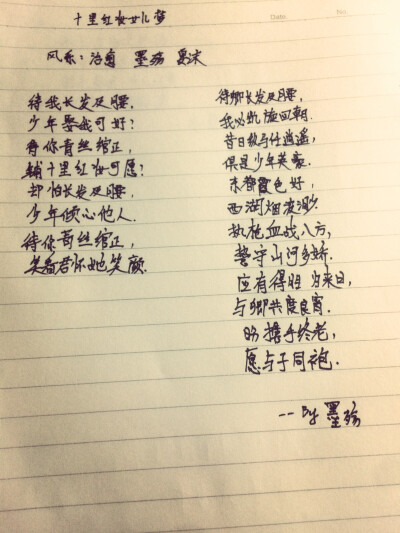 十里红妆女儿梦
Date
No.
风示：治自 墨殇 夏沫
待我长发及腰，
少年娶我可好？
待你青丝绾正，
铺十里红妆可愿？
却怕长发及腰，
少年倾心他人.
待你青丝绾正，
笑看君怀她笑颜.
待卿长发及腰，
我必凯旋回朝.
昔日纵马任逍遥，
俱是少年英豪.
东都霞色好，
西湖烟波渺.
执枪血战八方，
誓守山河多娇.
应有得胜归来日，
与卿共度良宵.
盼携手终老，
愿与子同袍.
-- By 墨殇